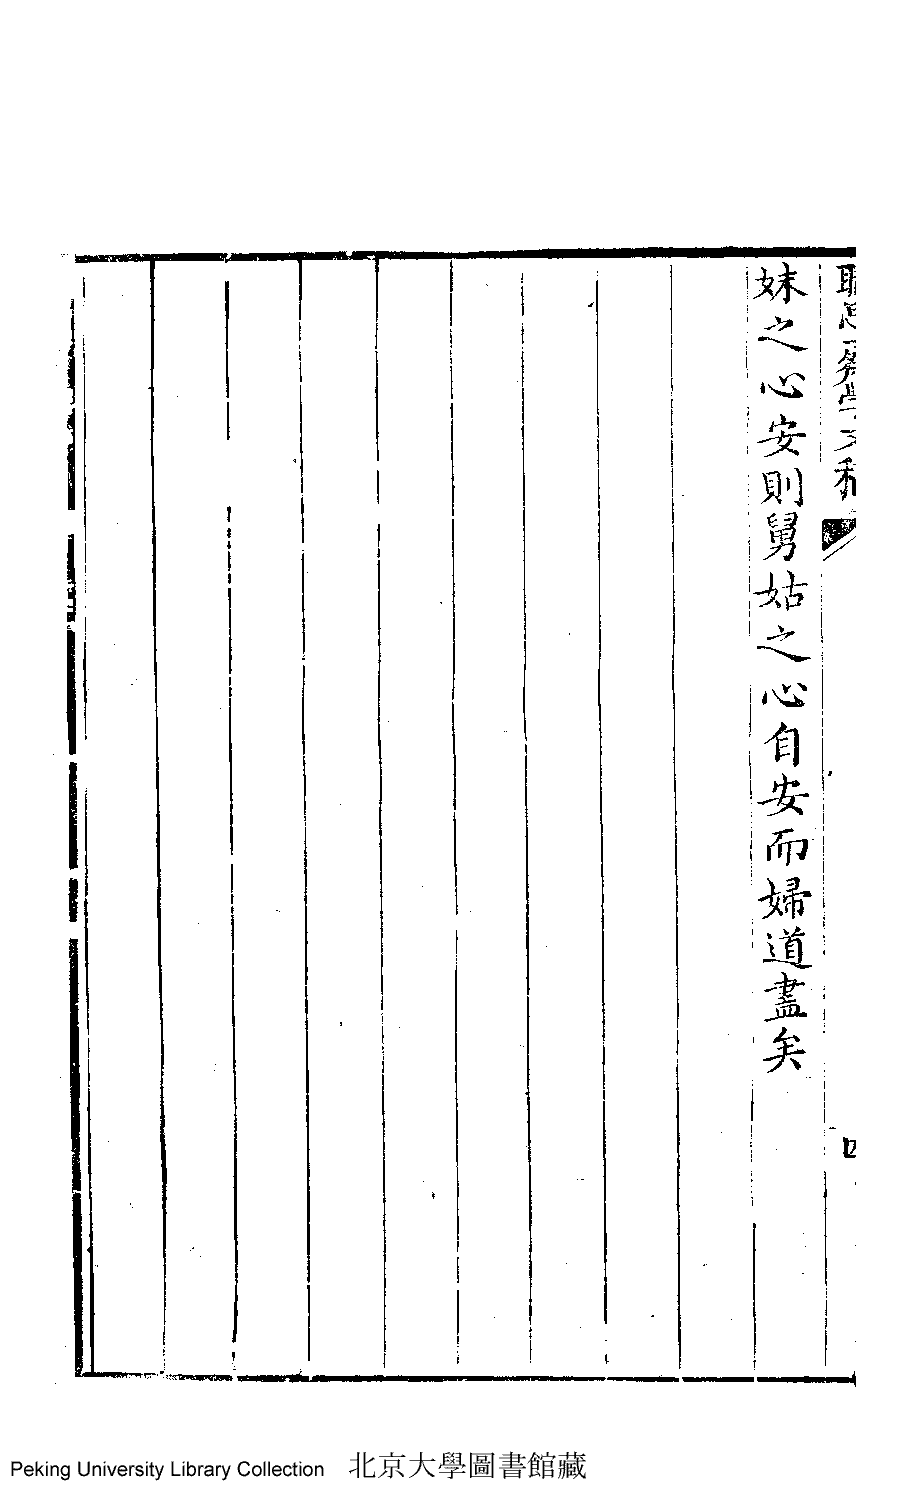 妹之心安則舅姑之心自安而婦道盡矣
Peking University Library Collection 北京大學圖書館藏